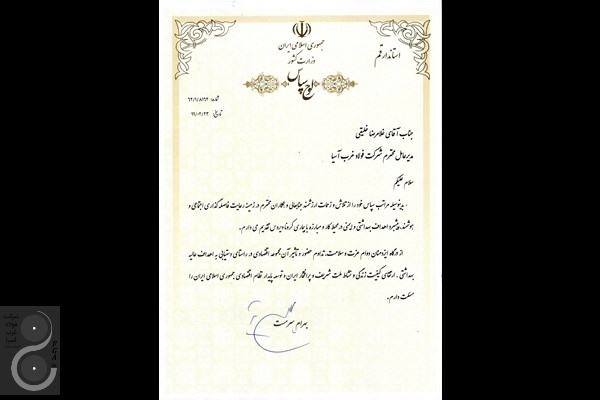 جمهوری اسلامی ایران
وزارت کشور
استاندار قم
لوح سپاس
شماره: ۶۲/۱/۸۱۹۲
تاریخ: ۹۹/۰۲/۲۳
جناب آقای غلامرضا خلیقی
مدیرعامل محترم شرکت فولاد غرب آسیا
سلام علیکم
بدینوسیله مراتب سپاس خود را از تلاش و زحمات ارزشمند جنابعالی و همکاران محترم در زمینه رعایت فاصله گذاری اجتماعی و
هوشمند، پیشبرد اهداف بهداشتی و ایمنی در محیط کار و مبارزه با بیماری کرونا ویروس تقدیم می دارم.
از درگاه ایزد منان دوام عزت و سلامت، تداوم حضور و تأثیر آن مجموعه اقتصادی در راستای دستیابی به اهداف عالیه
بهداشتی، ارتقای کیفیت زندگی و نشاط ملت شریف و پرافتخار ایران و توسعه پایدار نظام اقتصادی جمهوری اسلامی ایران را
مسئلت دارم.
بهرام سرمست
شرکت
فولاد
غرب
آسیا